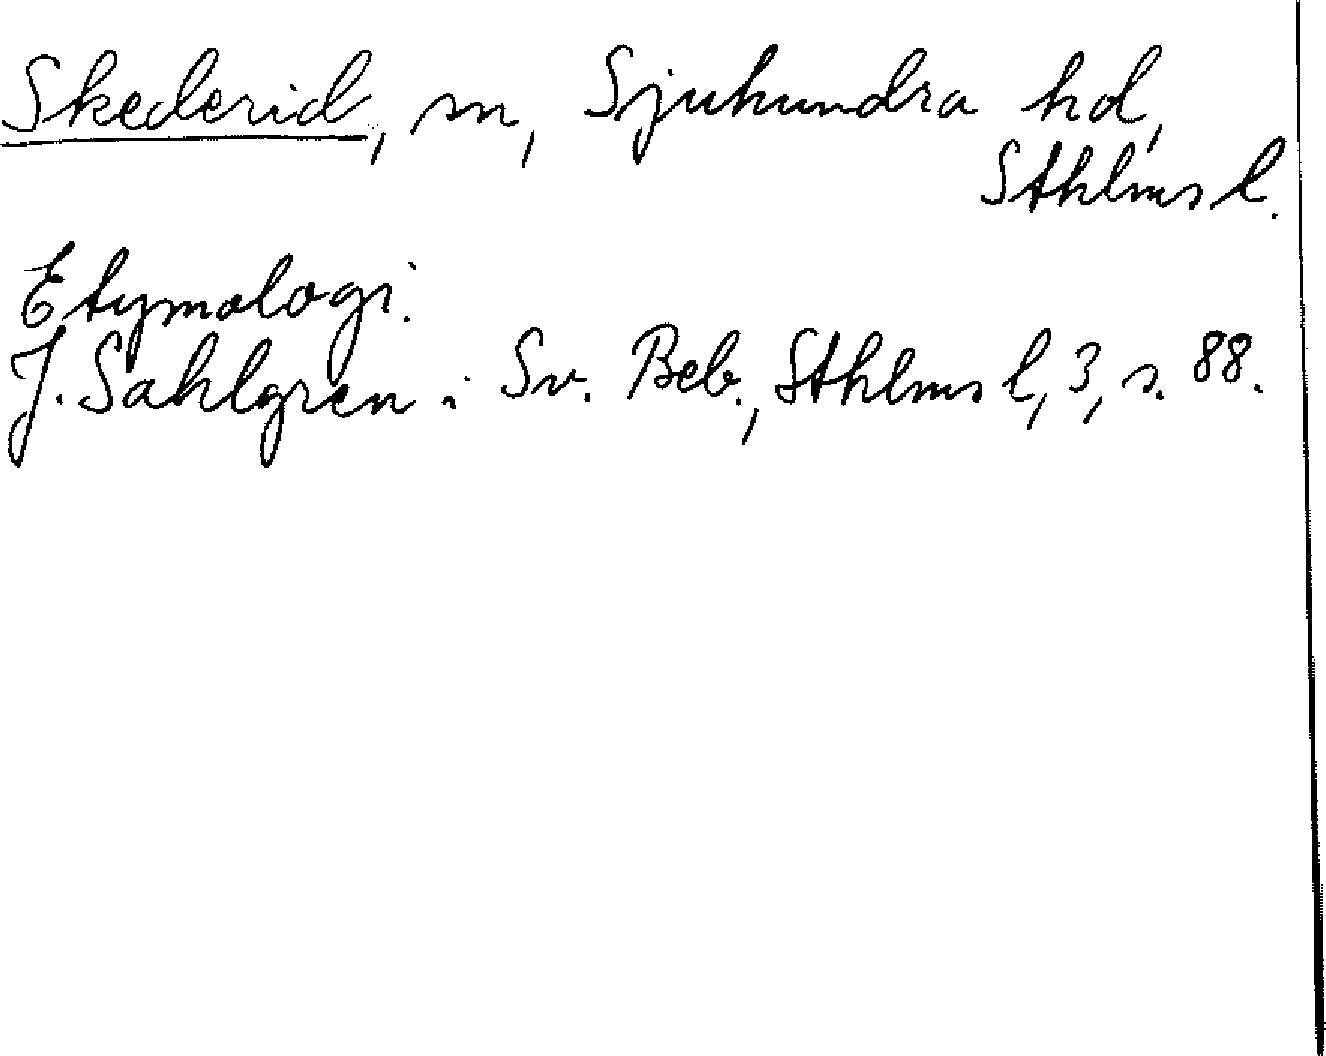 Skederid, sn, Sjuhundra hd,
Sthlms l.
Etymologi.
J. Sahlgren i Sv. Beb., Sthlms l, 3, s. 88.